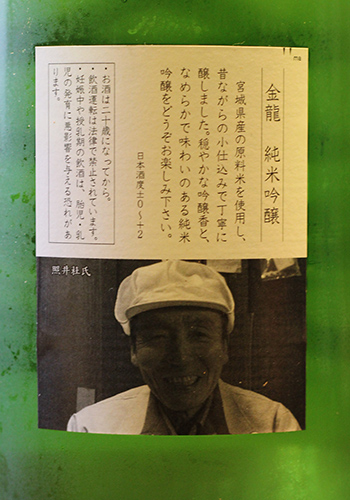 金龍　純米吟醸
宮城県産の原料米を使用し、
昔ながらの小仕込みで丁寧に
醸しました。穏やかな吟醸香と、
なめらかで味わいのある純米
吟醸をどうぞお楽しみ下さい。
日本酒度±0～+2
・お酒は二十歳になってから。
・飲酒運転は法律で禁止されています。
・妊娠中や授乳期の飲酒は、胎児・乳
児の発育に悪影響を与える恐れがあ
ります。
照井杜氏